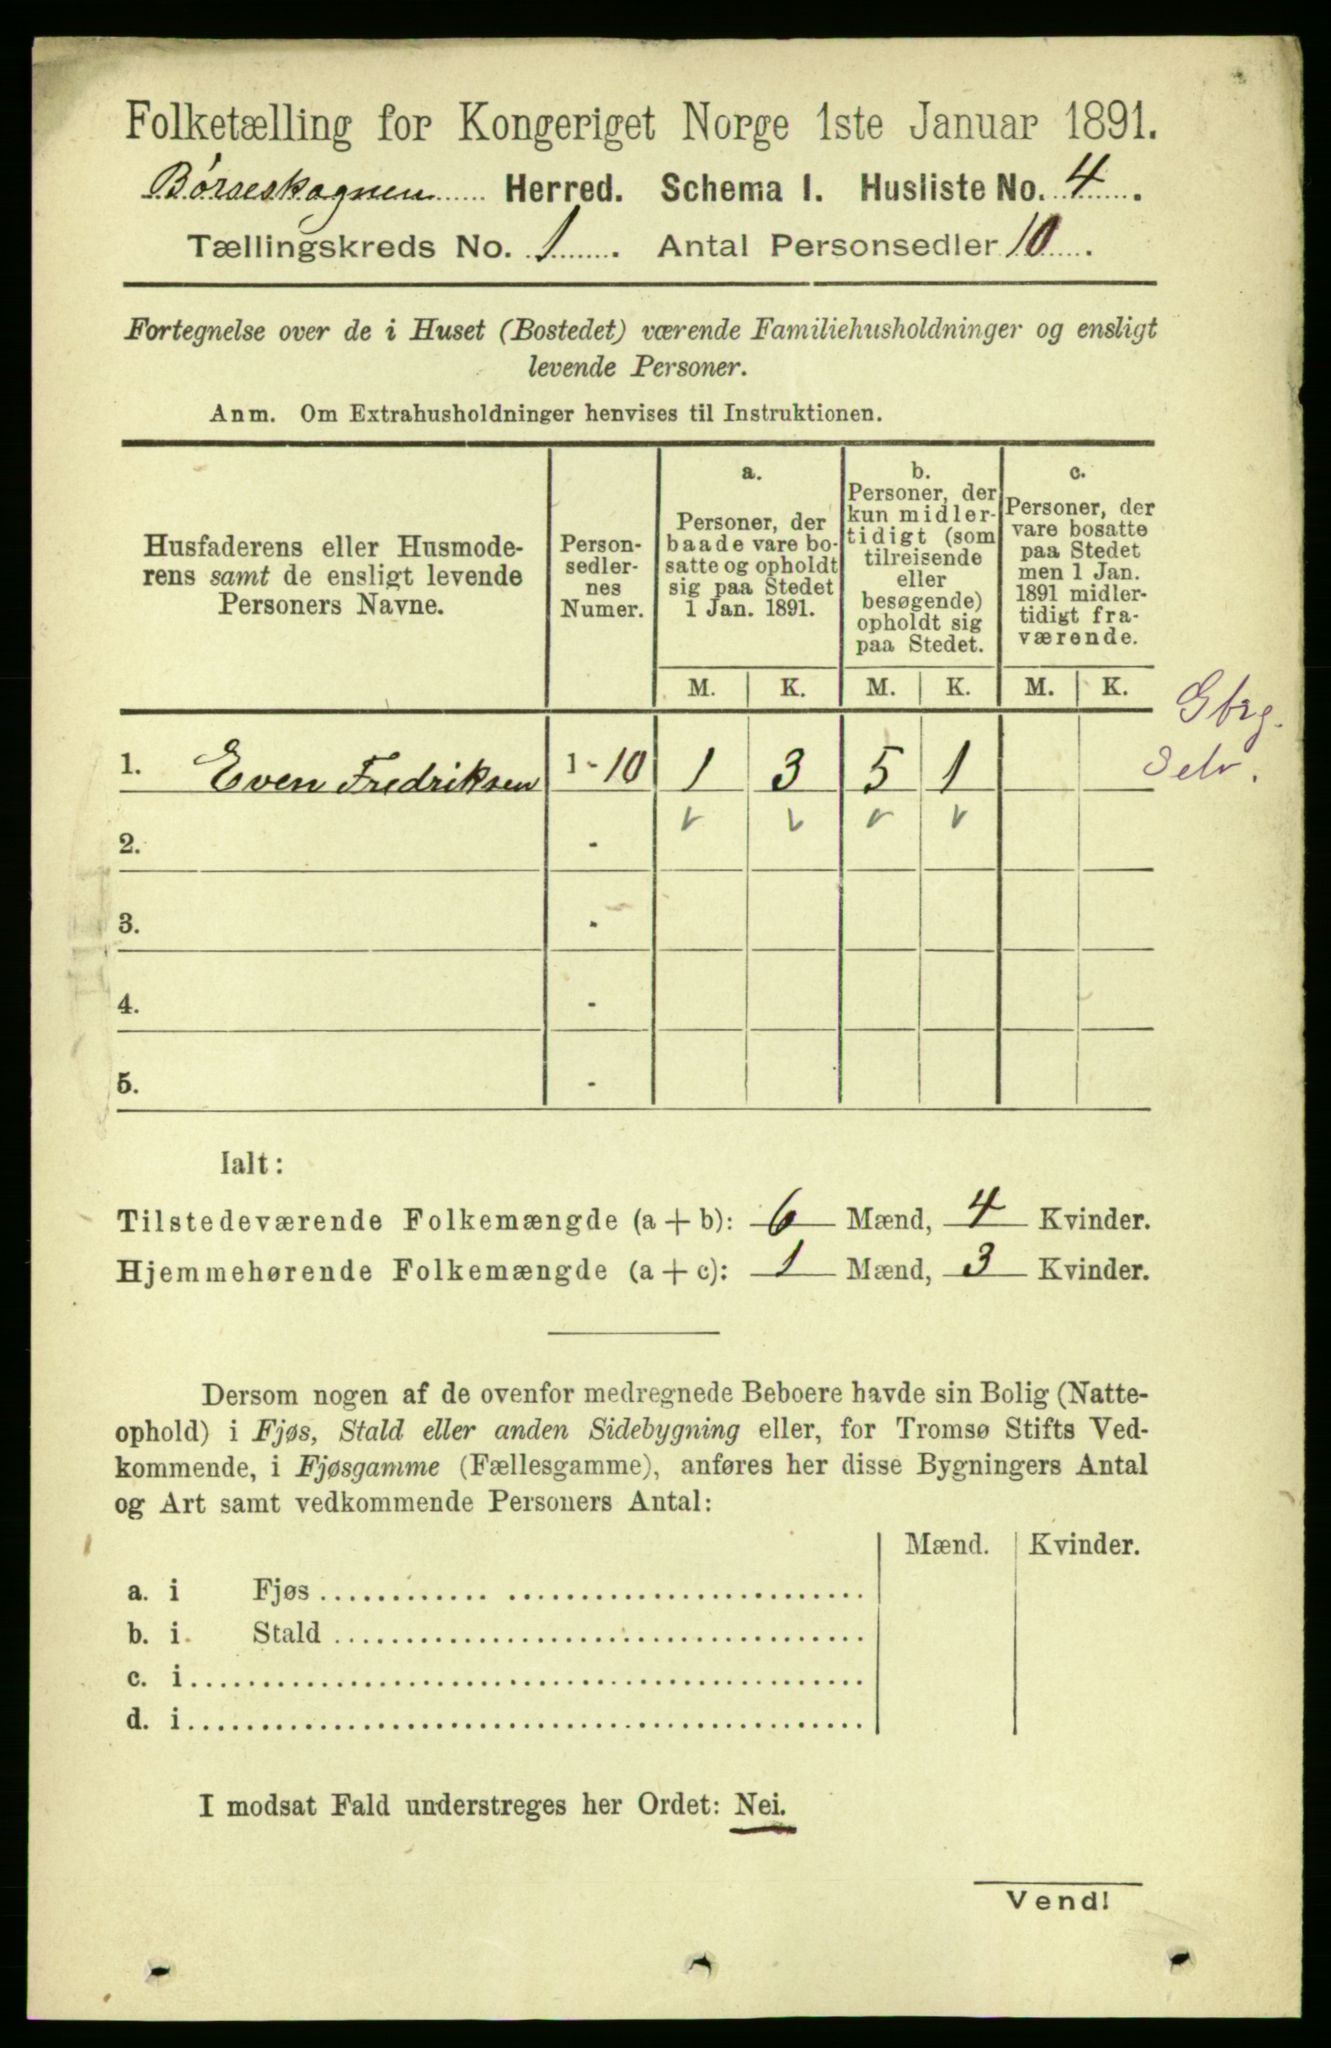 Folketælling for Kongeriget Norge 1ste Januar 1891.
Børseskognen Herred. Schema I. Husliste No. 4.
Tællingskreds No. 1. Antal Personsedler 10.
Fortegnelse over de i Huset (Bostedet) værende Familiehusholdninger og ensligt
levende Personer.
Anm. Om Extrahusholdninger henvises til Instruktionen.
Husfaderens eller Husmode-
rens samt de ensligt levende
Personers Navne.
Person-
sedler-
nes
Numer.
a.
Personer, der
baade vare bo-
satte og opholdt
sig paa Stedet
1 Jan. 1891.
b.
Personer, der
kun midler-
tidigt (som
tilreisende
eller
besøgende)
opholdt sig
paa Stedet.
c.
Personer, der
vare bosatte
paa Stedet
men 1 Jan.
1891 midler-
tidigt fra-
værende.
M. K. M. K. M. K.
Gbrg.
Selv.
1. Even Fredriksen 1-10 1 3 5 1
2. -
3. -
4. -
5. -
Ialt:
Tilstedeværende Folkemængde (a + b): 6 Mænd, 4 Kvinder.
Hjemmehørende Folkemængde (a + c): 1 Mænd, 3 Kvinder.
Dersom nogen af de ovenfor medregnede Beboere havde sin Bolig (Natte-
ophold) i Fjøs, Stald eller anden Sidebygning eller, for Tromsø Stifts Ved-
kommende, i Fjøsgamme (Fællesgamme), anføres her disse Bygningers Antal
og Art samt vedkommende Personers Antal:
Mænd. Kvinder.
a. i Fjøs
b. i Stald
c. i
d. i
I modsat Fald understreges her Ordet: Nei.
Vend!